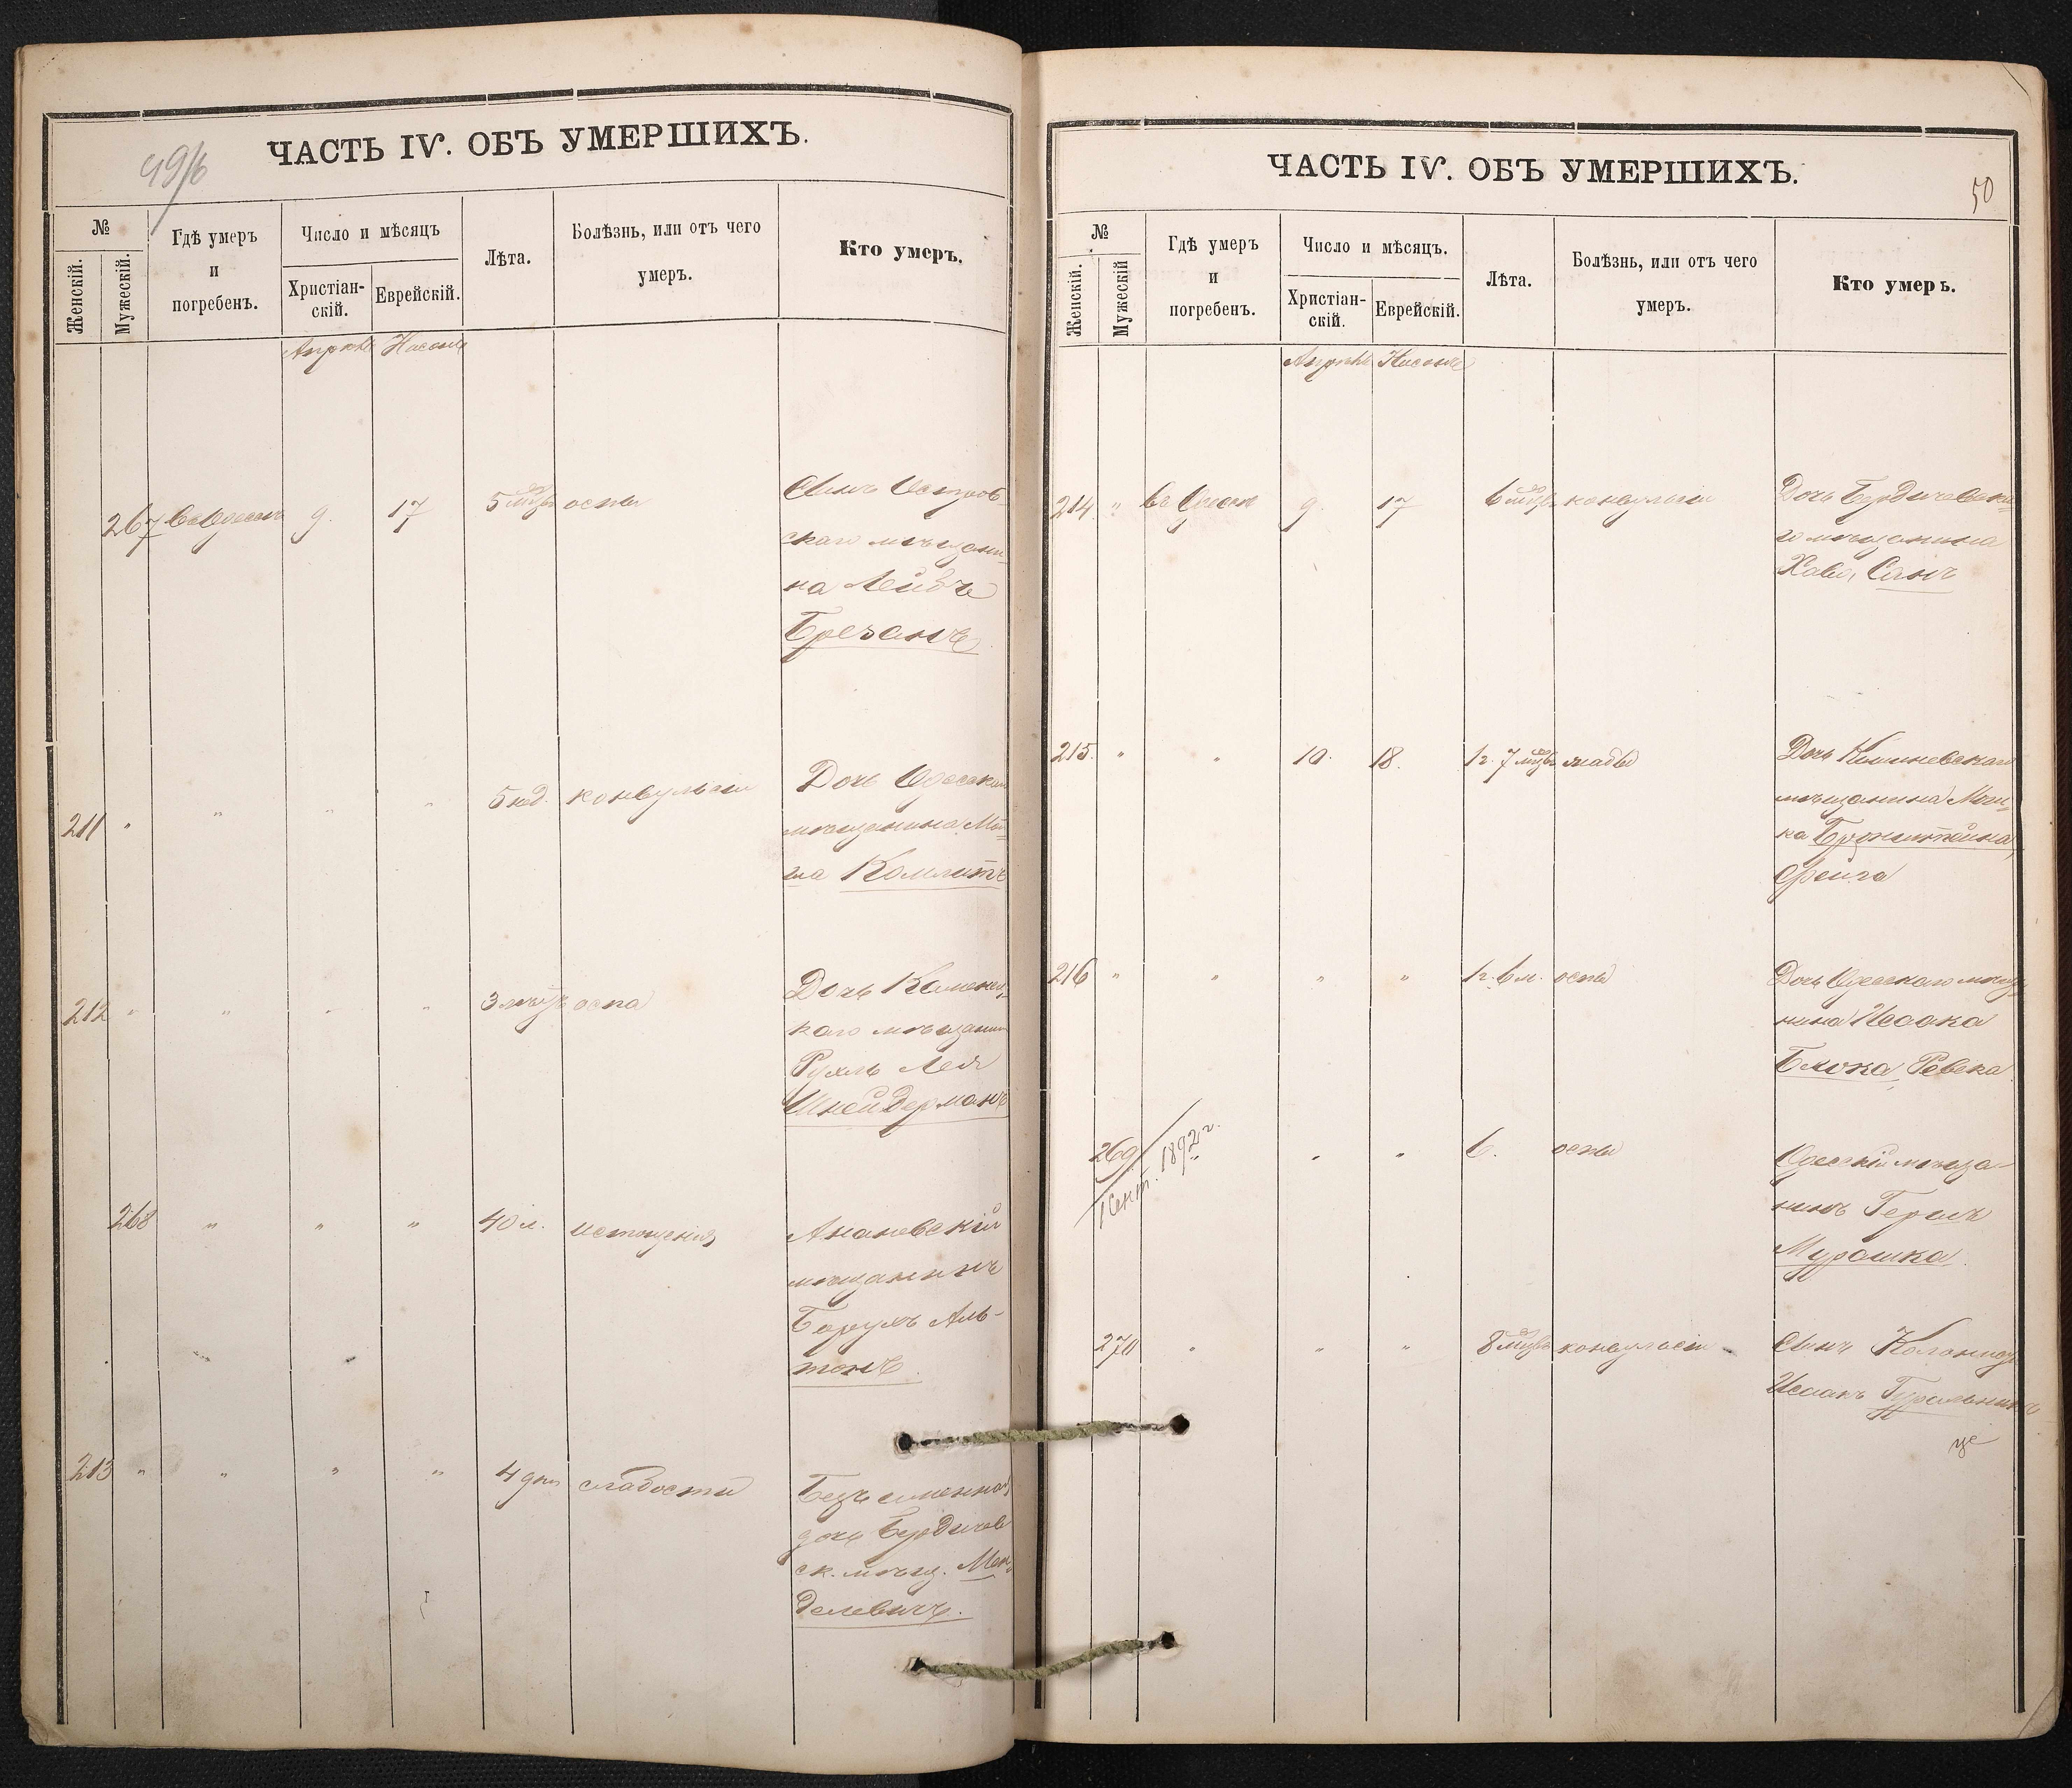 49/б
ЧАСТЬ IV. ОБЪ УМЕРШИХЪ.
№
Женскій.
Мужескій.
Гдѣ умеръ
и
погребенъ.
Число и мѣсяцъ
Христіан-
скій.
Еврейскій.
Лѣта.
Болѣзнь, или отъ чего
умеръ.
Кто умеръ.
Апрѣль Нисонъ
267 въ Одессѣ 9. 17 5 мцвъ оспы Сынъ Остров-
скаго мѣщани-
на Лейбъ
Брезанъ
211 " " " " 5 нед. конвульсіи Дочь Одесскаго
мѣщанина
Комлитъ
212 " " " " 3 оспа Дочь Каменец-
каго мѣщанина
Рухль Лея
Шнейдерманъ
268 " " " 40 л. истощенія Ананьевскій
мѣщанинъ
Борухъ Аль-
тонъ.
213 " " " " 4 дня слабости Безъименная
дочь Бердичев
ск. мѣщ. Мен
делевичъ.
ЧАСТЬ IV. ОБЪ УМЕРШИХЪ.
50
№
Женскій.
Мужескій
Гдѣ умеръ
и
погребенъ.
Число и мѣсяцъ.
Христіан-
скій.
Еврейскій.
Лѣта.
Болѣзнь, или отъ чего
умеръ.
Кто умеръ.
Апрѣль Нисонъ
214 " въ Одессѣ 9. 17 6 мцвъ конвульсіи Дочь Бердичевска-
го мѣщанина
Хава, Санъ
215. " " 10. 18. 1 г. 7 мцвъ жабы Дочь Кишиневскаго
мѣщанина Мош-
ка Бронштейна,
Фейга
216 " " " " 1 г. 6 м. оспы Дочь Одесскаго мѣща-
нина Исаака
Блока, Ревека
269 " " 6. оспы Одесскій мѣща-
1 Сент. 1892 г.
нинъ Герш
Мурашка
270 " " " 8 мцвъ конвульсіи Сынъ
Исаакъ Гуральникъ